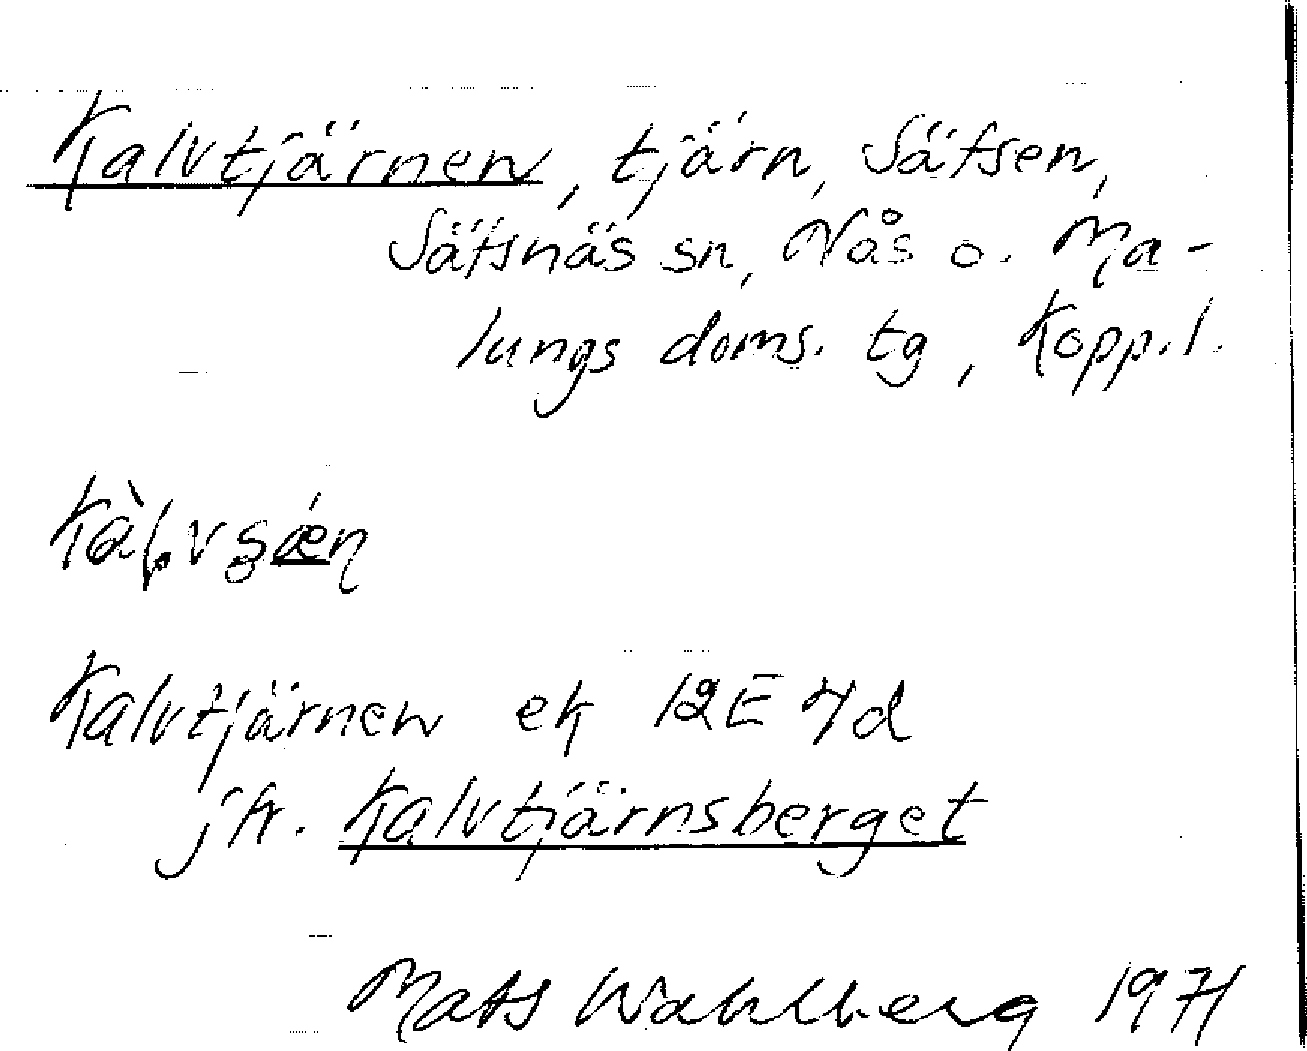 Kalvtjärnen, tjärn, Sätsen,
Sätsnäs sn, Nås o. Ma-
lungs doms. tg, Kopp. l.
Kalvtjärnen ek 12E 7d
jfr. Kalvtjärnsberget
Mats Wahlberg 1971